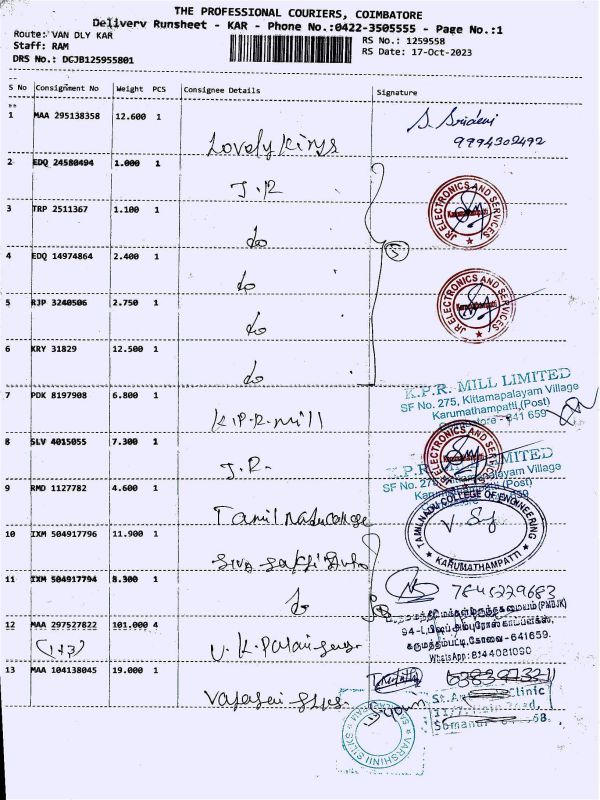 THE PROFESSIONAL COURIERS, COIMBATORE
Delivery Runsheet - KAR - Phone No.:0422-3505555 - Page No.:1
Route: VAN DLY KAR
Staff: RAM
DRS No.: DGJB125955801
RS No.: 1259558
RS Date: 17-Oct-2023
S No Consignment No Weight PCS Consignee Details Signature
1 MAA 295138358 12.600 1 Lovely Kings
9994302492
2 EDQ 24580494 1.000 1 J.R
3 TRP 2511367 1.100 1 do
4 EDQ 14974864 2.400 1 do
5
5 RJP 3240506 2.750 1 do
6 KRY 31829 12.500 1 do
JR ELECTRONICS AND SERVICES
Karumathampatti
JR ELECTRONICS AND SERVICES
7 PDK 8197908 6.800 1 K.P.R. mill
K.P.R. MILL LIMITED
SF No. 275, Kittampalayam Village
Karumathampatti,(Post)
Coimbatore - 641 659
8 SLV 4015055 7.300 1 J.R.
9 RMD 1127782 4.600 1 Tamil Nadu College
TAMILNADU COLLEGE OF ENGINEERING
KARUMATHAMPATTI
10 IXM 504917796 11.900 1
11 IXM 504917794 8.300 1 do
7845229683
கருமத்தம்பட்டி,கோவை-641659.
WhatsApp: 8144081090
12 MAA 297527822 101.000 4
(1+3)
13 MAA 104138045 19.000 1
VARSHINII SILKS
Clinic